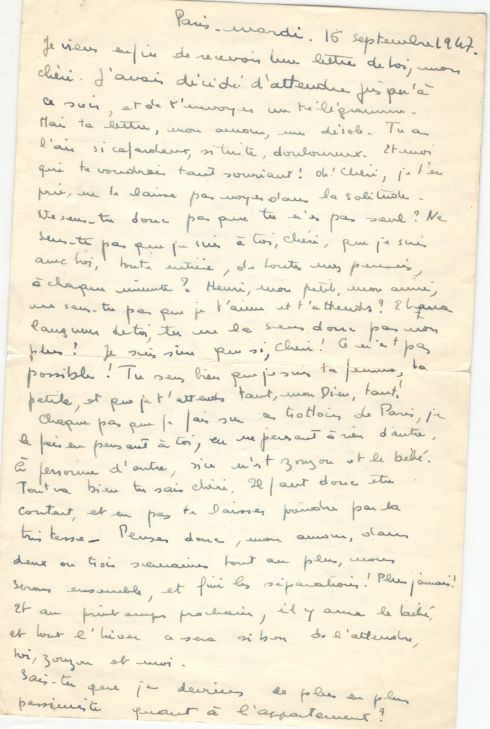 Paris - mardi. 16 septembre 1947.
Je viens enfin de recevoir une lettre de toi, mon
chéri. J'avais décidé d'attendre jusqu'à
ce soir, et de t'envoyer un télégramme.
Mais ta lettre, mon amour, me désole. Tu as
l'air si cafardeux, si triste, douloureux. Et moi
qui te voudrais tant souriant! Oh! Chéri, je t'en
prie, ne te laisse pas noyer dans la solitude.
Ne sens-tu donc pas que tu n'es pas seul? Ne
sens-tu pas que je suis à toi, chéri, que je suis
avec toi, toute entière, de toutes mes pensées,
à chaque minute? Henri, mon petit, mon aimé,
ne sens-tu pas que je t'aime et t'attends? Et ma
langueur de toi, tu ne la sens donc pas non
plus? Je suis sûre que si, Chéri! Ce n'est pas
possible! Tu sens bien que je suis ta femme, ta
petite, et que je t'attends tant, mon Dieu, tant!
Chaque pas que je fais sur les trottoirs de Paris, je
le fais en pensant à toi, en ne pensant à rien d'autre,
à personne d'autre, si ce n'est Zouzou et le bébé.
Tout va bien tu sais chéri. Il faut donc être
content, et ne pas te laisser prendre par la
tristesse - Penses donc, mon amour, dans
deux ou trois semaines tout au plus, nous
serons ensemble, et fini les séparations! Plus jamais!
Et au printemps prochain, il y aura le bébé,
et tout l'hiver ce sera si bon de l'attendre,
toi, Zouzou et moi.
Sais-tu que je deviens de plus en plus
pessimiste quant à l'appartement?